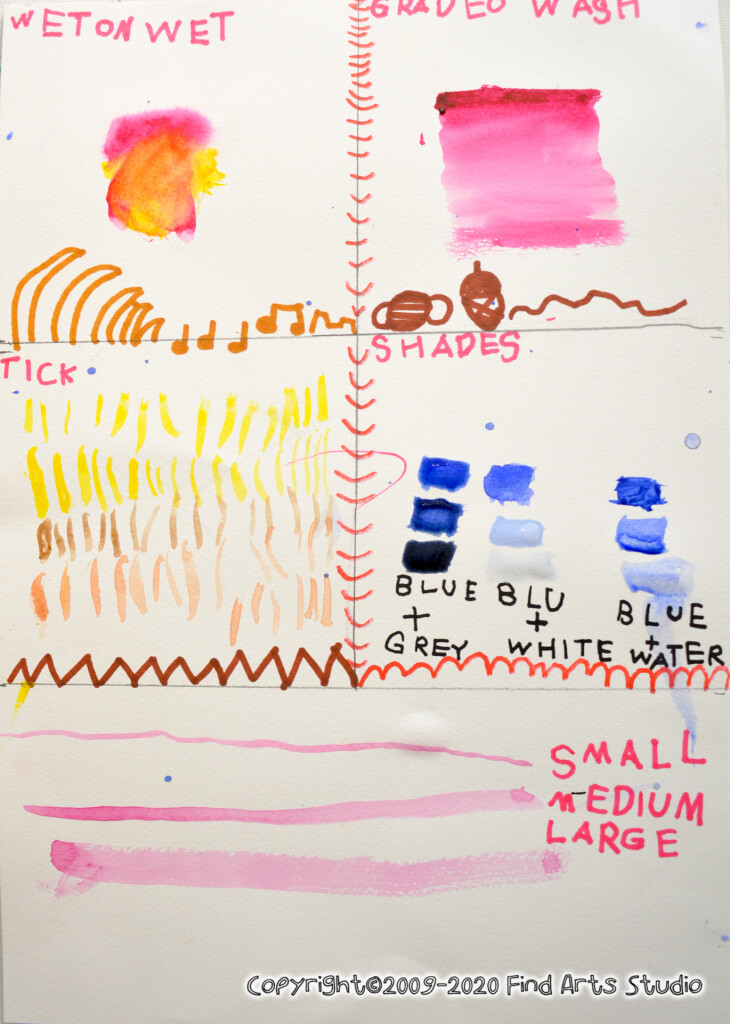 WET ON WET
GRADED WASH
TICK
SHADES
BLUE
+
GREY
BLU
+
WHITE
BLUE
+
WATER
SMALL
MEDIUM
LARGE
Copyright©2009-2020 Find Arts Studio